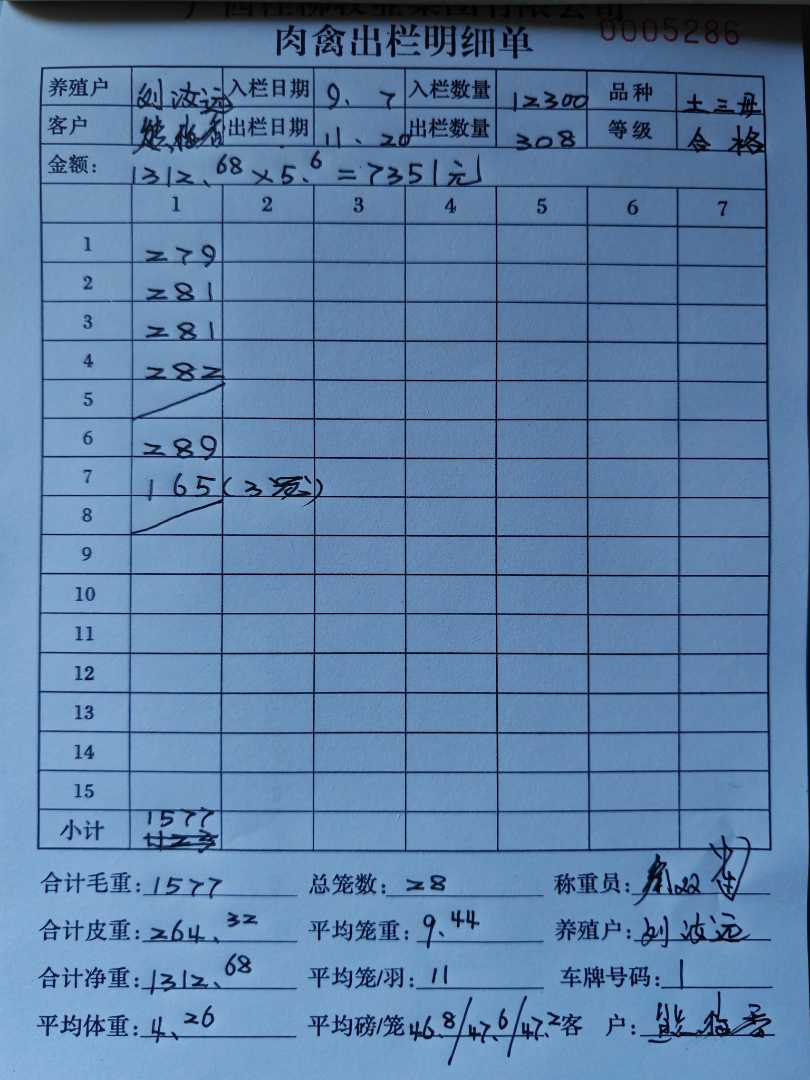 肉禽出栏明细单 0005286
养殖户 刘波远 入栏日期 9.7 入栏数量 12300 品种 土三母
客户 熊梅香 出栏日期 11.20 出栏数量 308 等级 合格
金额: 1312.68×5.6=7351元
1 2 3 4 5 6 7
1 279
2 281
3 281
4 282
5
6 289
7 165(3笼)
8
9
10
11
12
13
14
15
小计 1577
合计毛重: 1577 总笼数: 28 称重员:
合计皮重: 264.32 平均笼重: 9.44 养殖户: 刘波远
合计净重: 1312.68 平均笼/羽: 11 车牌号码: 1
平均体重: 4.26 平均磅/笼 46.8/47.6/47.2 客 户: 熊梅香